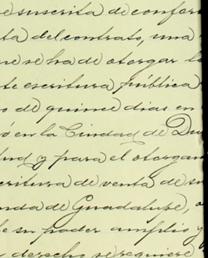 e suscrita de confor
ta del contrato, una
re se ha de otorgar la
te escritura pública
o de quince dias en
ó en la Ciudad de Du
lud y para el otorgam
critura de venta de su
nda de Guadalupe, o
e su poder amplio y
derecho se requiere